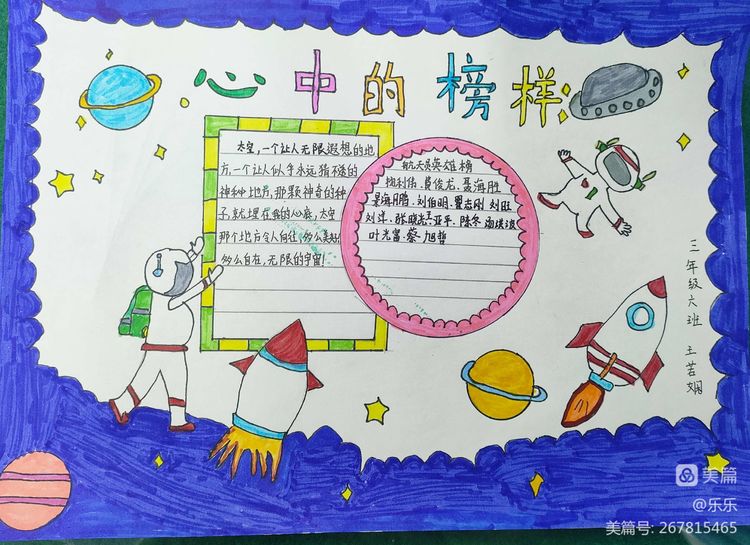 心中的榜样
太空,一个让人无限遐想的地
方,一个让人似乎永远猜不透的
神秘地方,那颗神奇的种
子,就埋在我的心底,太空
那个地方令人向往,多么美妙
多么自在,无限的宇宙!
航天员英雄榜
杨利伟、费俊龙、聂海胜
景海鹏、刘伯明、翟志刚、刘旺
刘洋、张晓光、王亚平、陈冬、汤洪波
叶光富、蔡旭哲
三年级六班 王若娴
美篇
@乐乐
美篇号: 267815465